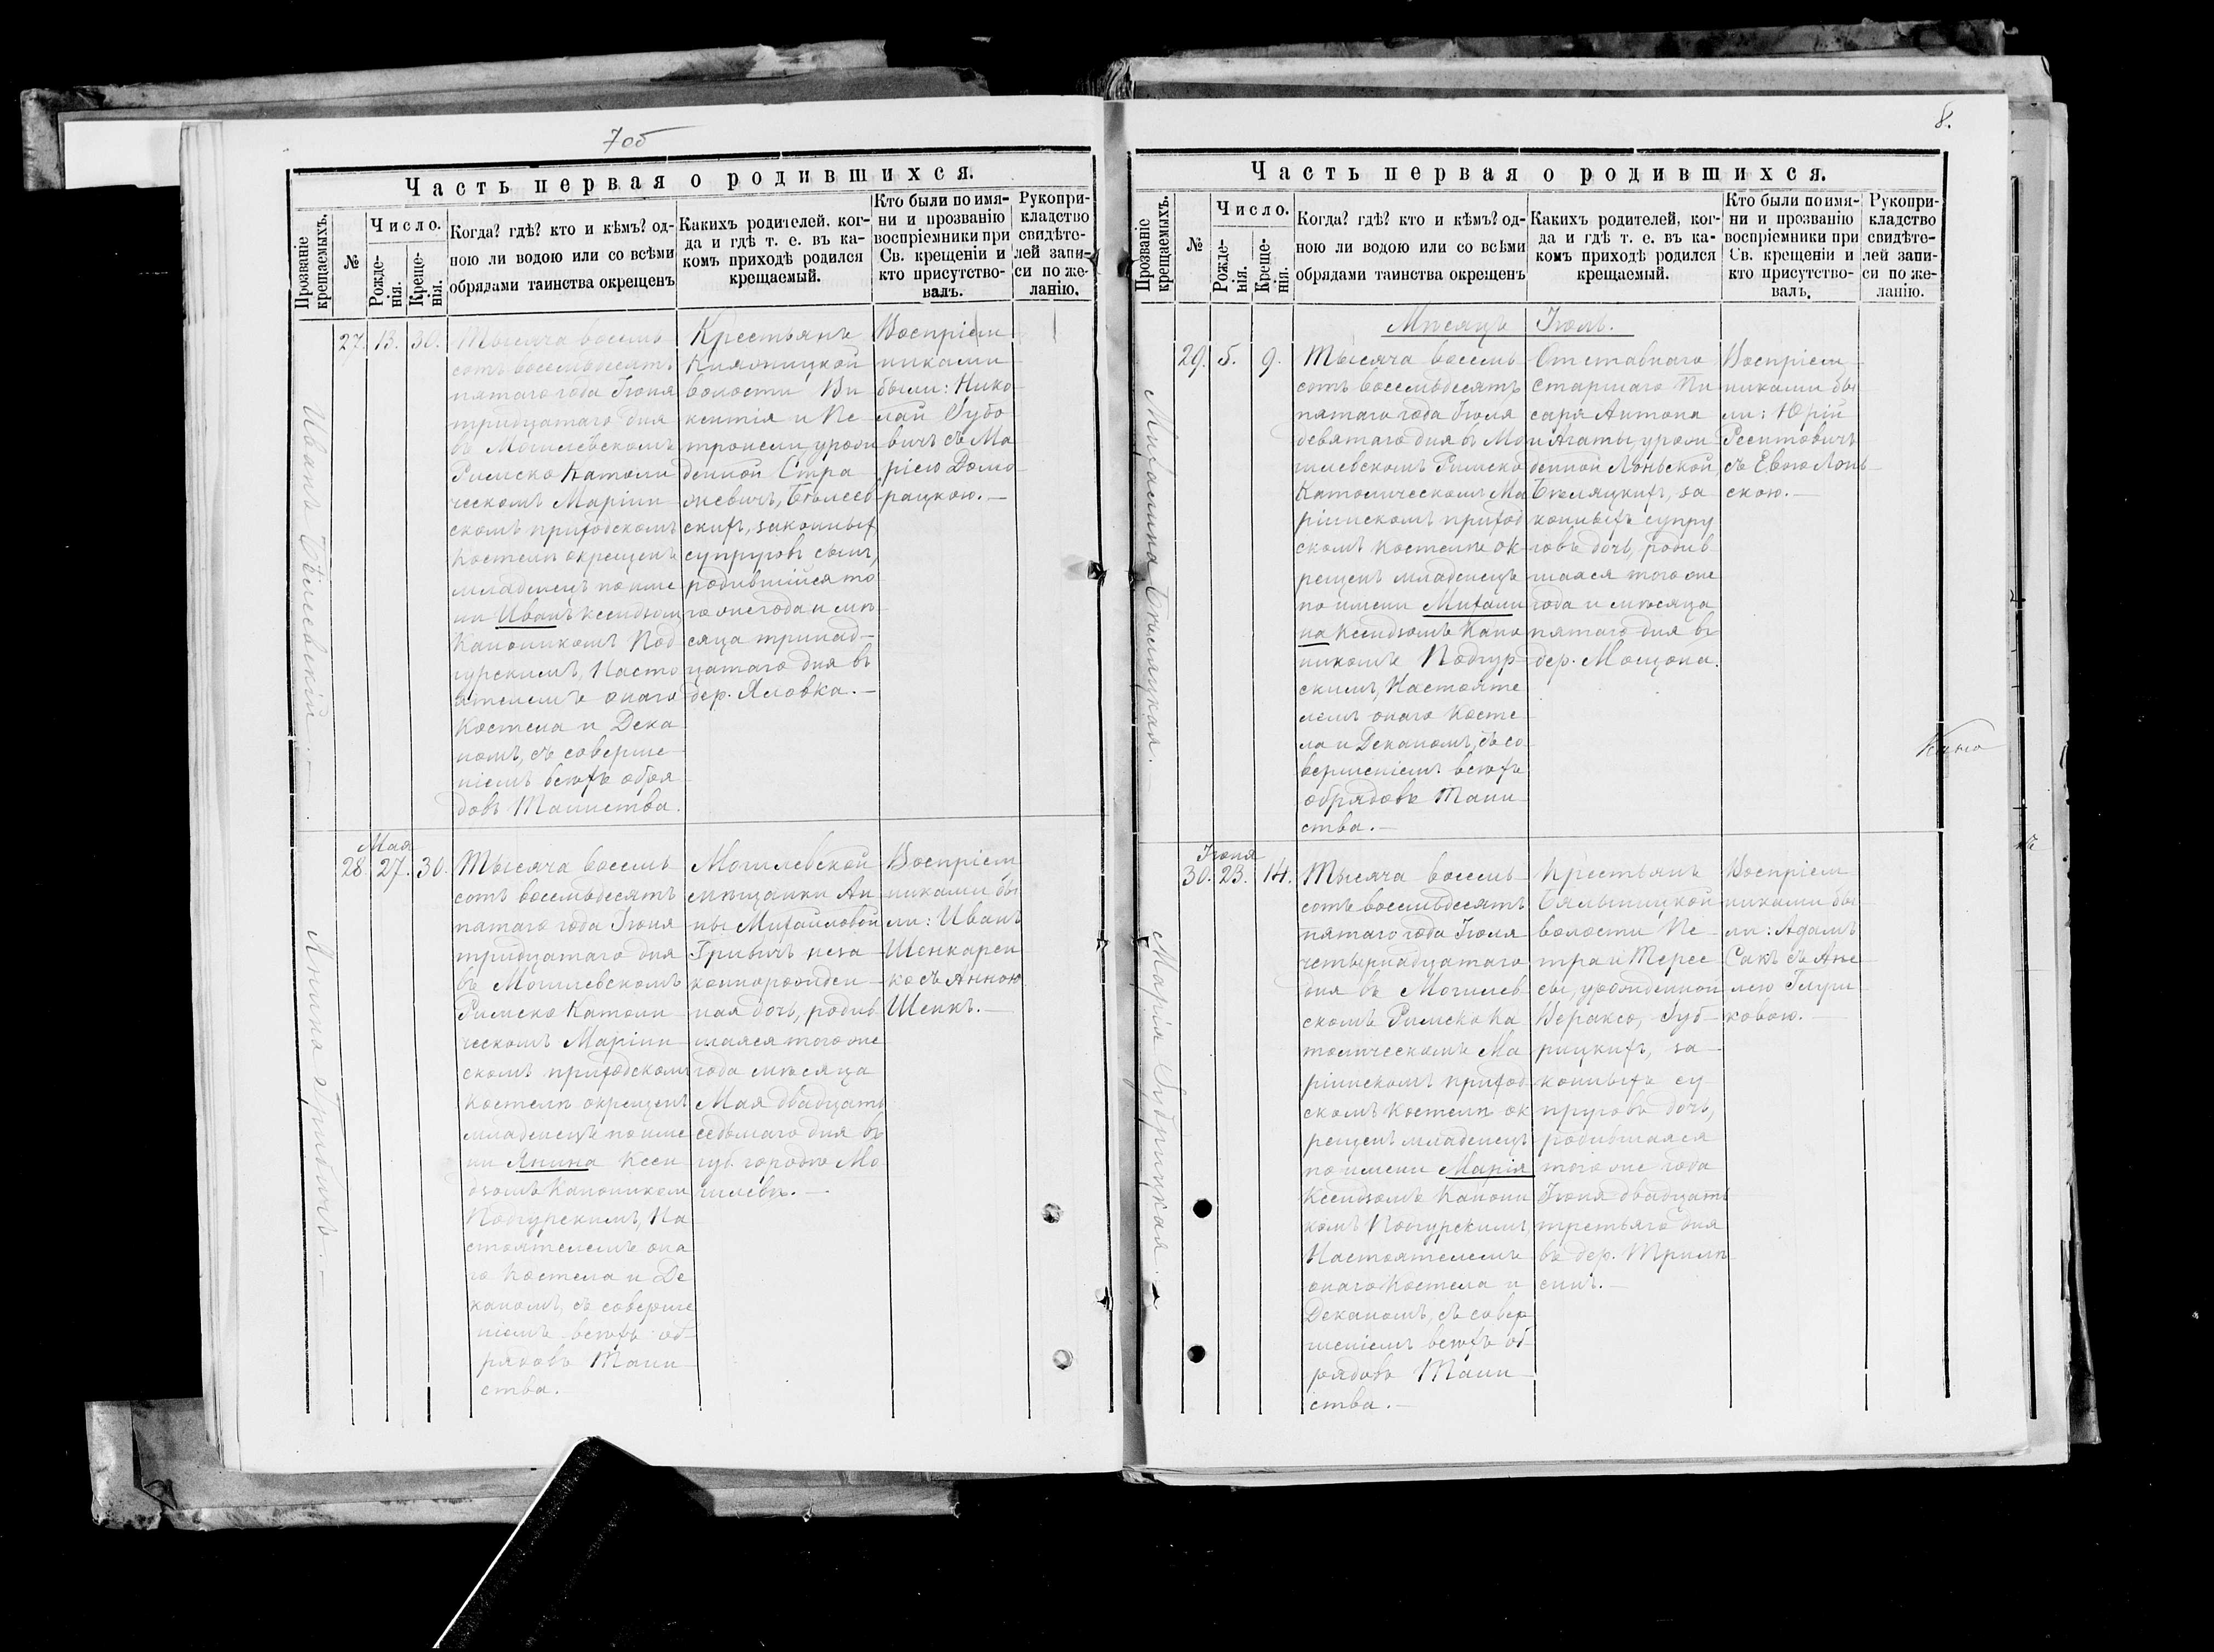 7об
Часть первая о родившихся.
Прозваніе крещаемыхъ.
№
Число.
Рожде-
нія.
Креще-
нія.
Когда? гдѣ? кто и кѣмъ? од-
ною ли водою или со всѣми
обрядами таинства окрещенъ
Какихъ родителей, ког-
да и гдѣ т. е. въ ка-
комъ приходѣ родился
крещаемый.
Кто были по имя-
ни и прозванію
воспріемники при
Св. крещеніи и
кто присутство-
валъ.
Рукопри-
кладство
свидѣте-
лей запи-
си по же-
ланію.
Иванъ Бѣлевскій.
27. 13. 30.
Тысяча восемь
сотъ восемьдесятъ
пятаго года Іюня
тридцатаго дня
въ Могилевскомъ
Римско Катол­и
ческомъ Маріин
скомъ приходскомъ
Костелѣ окрещенъ
младенецъ по име
ни Иванъ Ксендзом
Каноникомъ Под
гурскимъ, Насто
ятелемъ онаго
Костела и Дека
номъ, съ соверше
ніемъ всѣхъ обря
довъ Таинства.
Крестьянъ
Княжицкой
волости Ви
кентія и Пе
тронели урож
денной Стра
жевичъ,
скихъ, законныхъ
супруговъ сынъ,
родившійся то
го же года и мѣ
сяца тринад-
цатаго дня въ
дер. Яловка.
Воспріем
никами
были: Нико
лай Губо
вичъ съ Ма
ріею Домо
рацкою.
Янина Грибичъ.
Мая
28. 27. 30.
Тысяча восемь
сотъ восемьдесятъ
пятаго года Іюня
тридцатаго дня
въ Могилевскомъ
Римско Катол­и
ческомъ Маріин
скомъ приходскомъ
Костелѣ окрещенъ
младенецъ по име
ни Янина Ксен
дзомъ Каноником
Подгурскимъ, На
стоятелемъ она
го Костела и Де
каномъ, съ соверше
ніемъ всѣхъ об
рядовъ Таин
ства.
Могилевской
мѣщанки Ан
ны Михайловой
Грибичъ неза
коннорожден
ная дочь, родив
шаяся того же
года мѣсяца
Мая двадцать
седьмаго дня въ
губ. городѣ Мо
гилевѣ.
Воспріем
никами бы
ли: Иванъ
Шенкарен
ко съ Анною
Шенкъ.
8.
Часть первая о родившихся.
Прозваніе крещаемыхъ.
№
Число.
Рожде-
нія.
Креще-
нія.
Когда? гдѣ? кто и кѣмъ? од-
ною ли водою или со всѣми
обрядами таинства окрещенъ
Какихъ родителей, ког-
да и гдѣ т. е. въ ка-
комъ приходѣ родился
крещаемый.
Кто были по имя-
ни и прозванію
воспріемники при
Св. крещеніи и
кто присутство-
валъ.
Рукопри-
кладство
свидѣте-
лей запи-
си по же-
ланію.
Мѣсяцъ Іюль.
Михалина Бѣляцкая.
29. 5. 9.
Тысяча восемь
сотъ восемьдесятъ
пятаго года Іюля
девятаго дня въ Мо
гилевскомъ Римско
Католическомъ Ма
ріинскомъ приход
скомъ Костелѣ ок
рещенъ младенецъ
по имени Михали
на Ксендзомъ Кано
никомъ Подгур
скимъ, Настояте
лемъ онаго Косте
ла и Деканомъ, съ со
вершеніемъ всѣхъ
обрядовъ Таин
ства.
Отставнаго
старшаго Пи
саря Антона
и Агаты урож
денной Лоньской
Бѣляцкихъ, за
конныхъ супру
говъ дочь, родив
шаяся того же
года и мѣсяца
пятаго дня въ
дер. Мощона.
Воспріем
никами бы
ли: Юрій
съ Евою Лонь
скою.
Марія Губрицкая.
Іюня
30. 23. 14.
Тысяча восемь
сотъ восемьдесятъ
пятаго года Іюля
четырнадцатаго
дня въ Могилев
скомъ Римско Ка
толическомъ Ма
ріинскомъ приход
скомъ Костелѣ ок
рещенъ младенецъ
по имени Марія
Ксендзомъ Канони
комъ Подгурскимъ,
Настоятелемъ
онаго Костела и
Деканомъ, съ совер
шеніемъ всѣхъ об
рядовъ Таин
ства.
Крестьянъ
Бялыницкой
волости Пе
тра и Терес
сы, урожденной
Вераксо, Губ
рицкихъ, за
конныхъ су
пруговъ дочь,
родившаяся
того же года
Іюня двадцать
третьяго дня
въ дер.
Воспріем
никами бы
ли: Адамъ
Сакъ съ Ане
лею